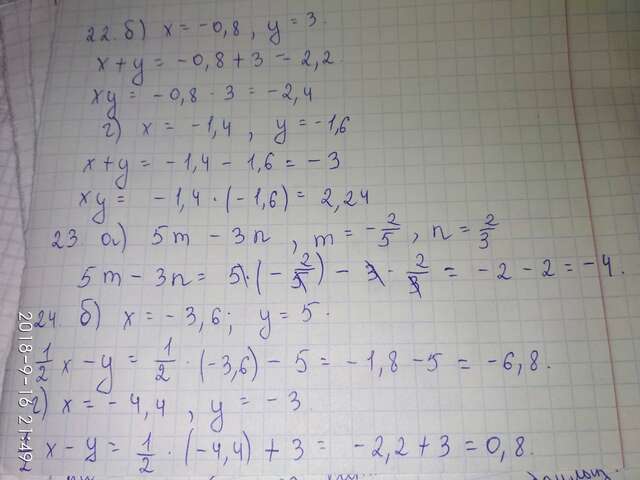 22. б) x = -0,8 , y = 3.
x + y = -0,8 + 3 = 2,2
xy = -0,8 · 3 = -2,4
г) x = -1,4 , y = -1,6
x + y = -1,4 - 1,6 = -3
xy = -1,4 · (-1,6) = 2,24
23 а) 5m - 3n , m = -2/5 , n = 2/3
5m - 3n = 5 · (-2/5) - 3 · 2/3 = -2 - 2 = -4.
24. б) x = -3,6; y = 5.
1/2 x - y = 1/2 · (-3,6) - 5 = -1,8 - 5 = -6,8.
г) x = -4,4 , y = -3
x - y = 1/2 · (-4,4) + 3 = -2,2 + 3 = 0,8.
2018-9-16 21:49